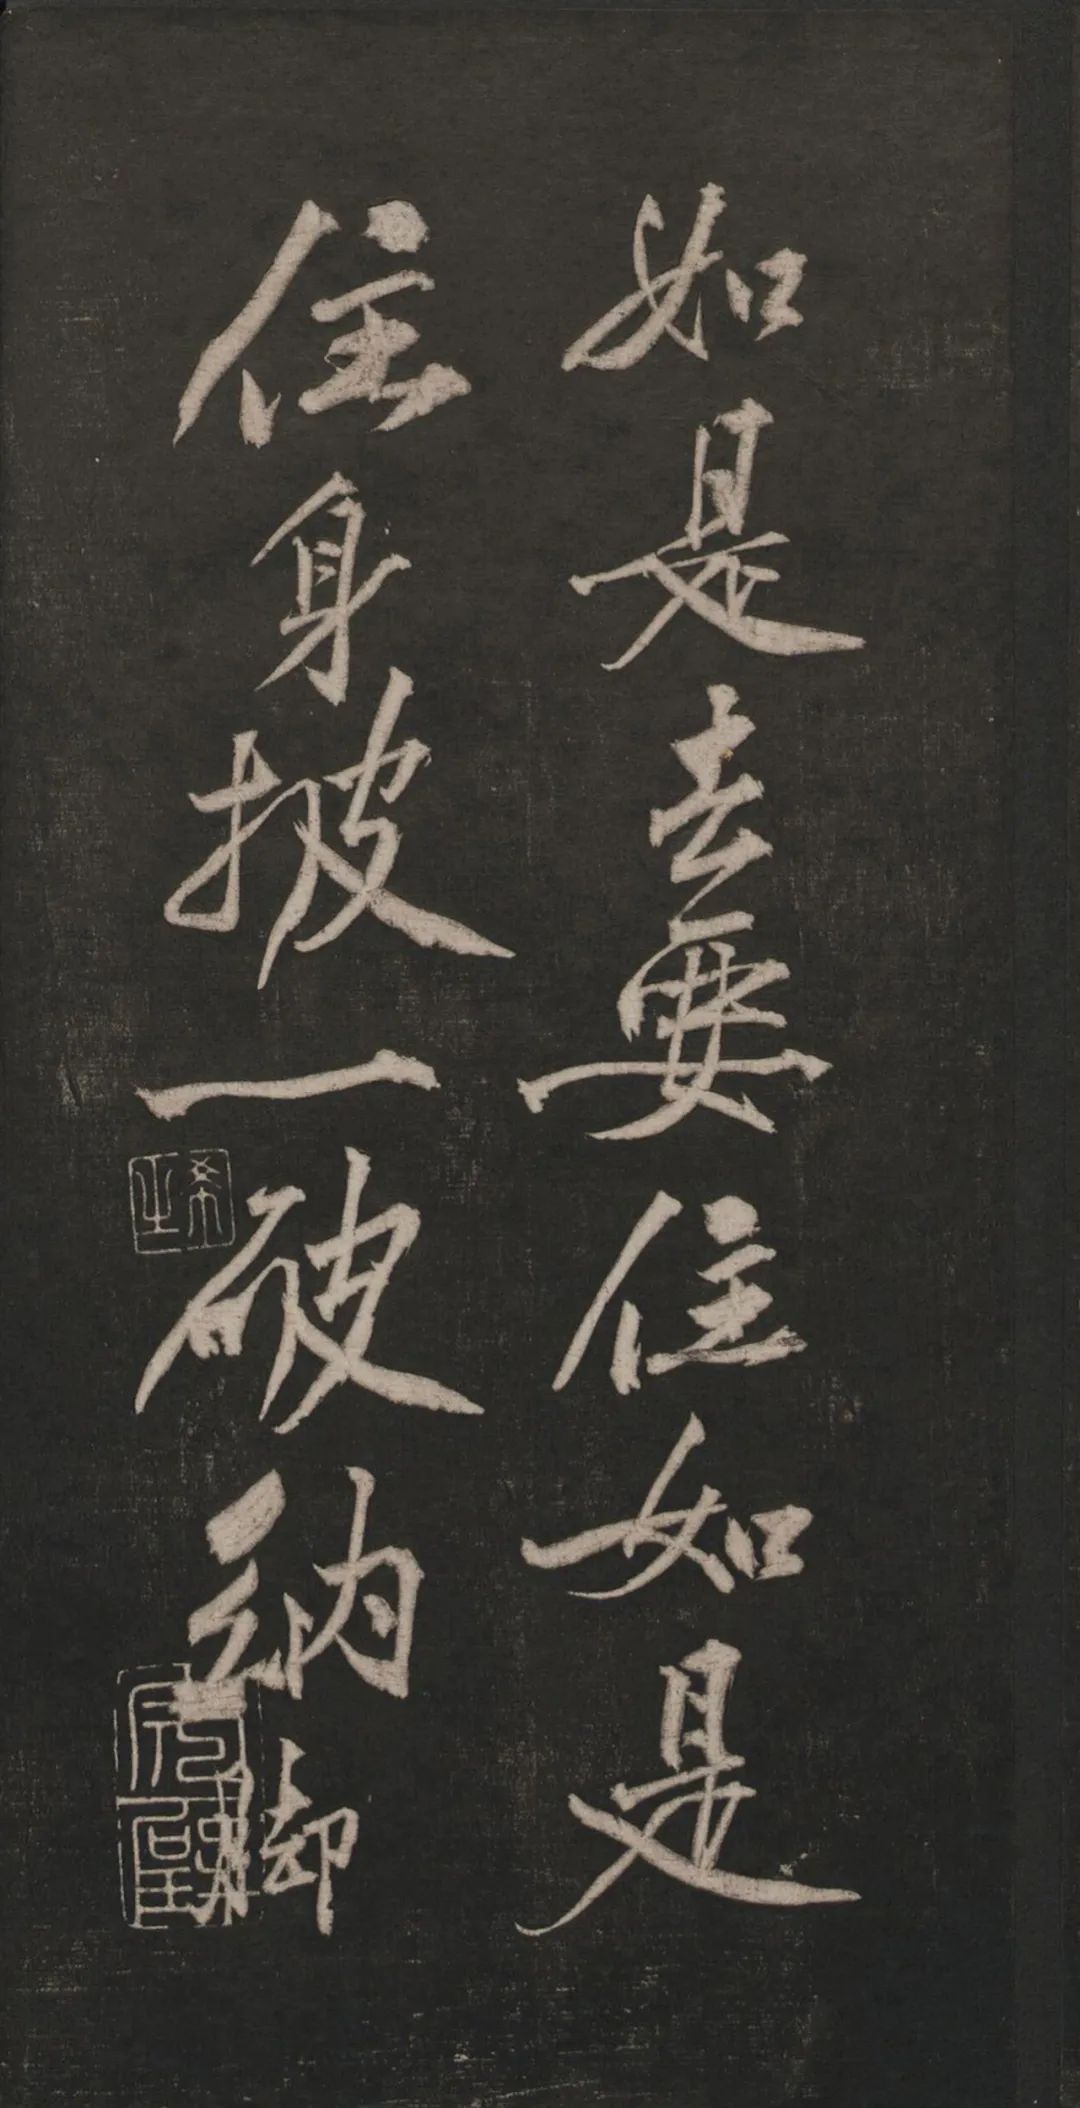 如是去要住如是
住身披一破納脚